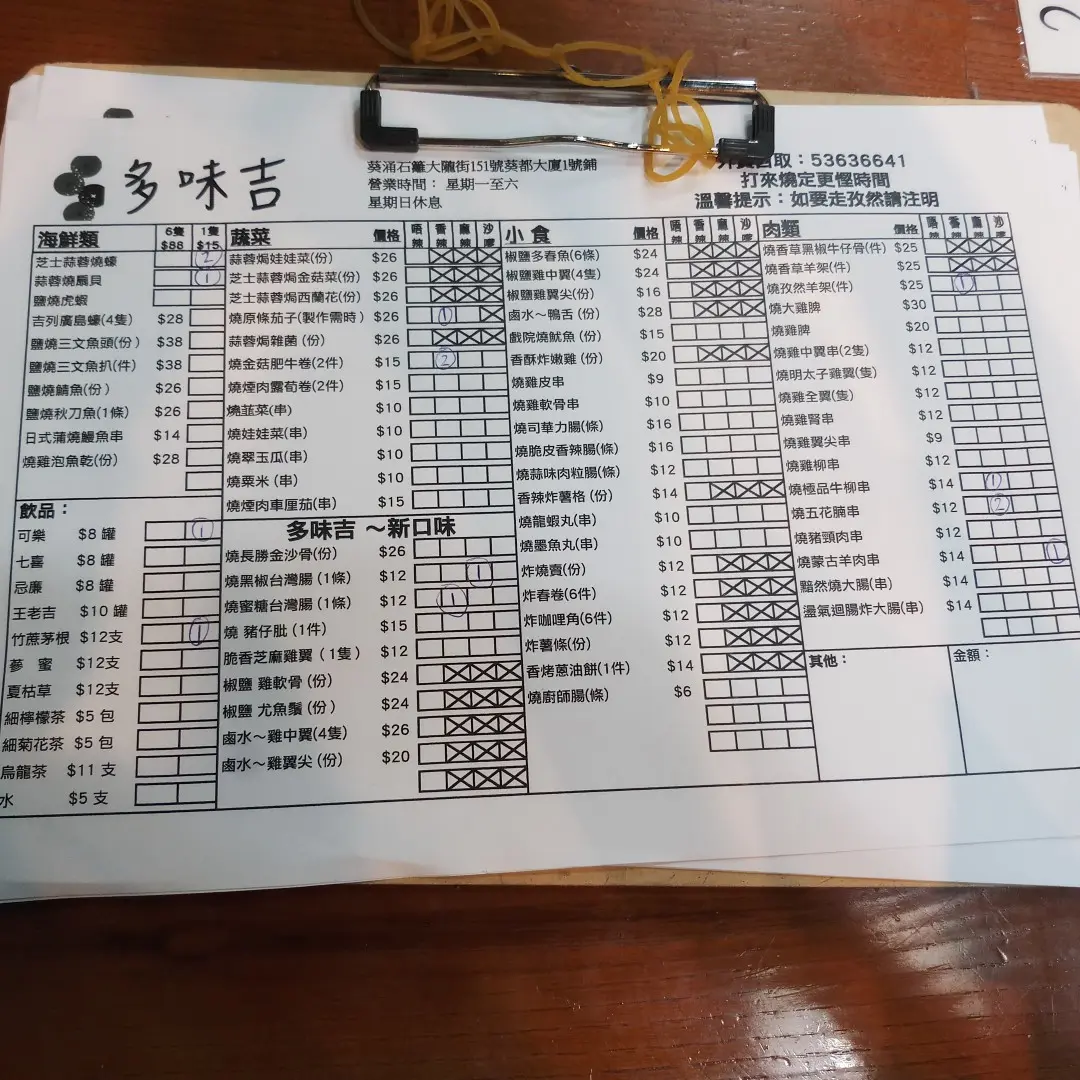 多味吉
葵涌石籬大隴街151號葵都大廈1號鋪
營業時間： 星期一至六
星期日休息
取：53636641
打來燒定更慳時間
溫馨提示：如要走孜然請注明
海鮮類 6隻 $88 1隻 $15
芝士蒜蓉燒蠔 2
蒜蓉燒扇貝 1
鹽燒虎蝦
吉列廣島蠔(4隻) $28
鹽燒三文魚頭(份) $38
鹽燒三文魚扒(件) $38
鹽燒鯖魚(份) $26
鹽燒秋刀魚(1條) $26
日式蒲燒鰻魚串 $14
燒雞泡魚乾(份) $28
飲品：
可樂 $8 罐 1
七喜 $8 罐
忌廉 $8 罐
王老吉 $10 罐
竹蔗茅根 $12支 1
蔘 蜜 $12支
夏枯草 $12支
細檸檬茶 $5 包
細菊花茶 $5 包
烏龍茶 $11 支
水 $5 支
蔬菜 價格 唔辣 香辣 麻辣 沙嗲
蒜蓉焗娃娃菜(份) $26
芝士蒜蓉焗金菇菜(份) $26
芝士蒜蓉焗西蘭花(份) $26
燒原條茄子(製作需時) $26 1
蒜蓉焗雜菌 (份) $26
燒金菇肥牛卷(2件) $15 2
燒煙肉露荀卷(2件) $15
燒韮菜(串) $10
燒娃娃菜(串) $10
燒翠玉瓜(串) $10
燒粟米 (串) $10
燒煙肉車厘茄(串) $15
多味吉 ～新口味
燒長勝金沙骨(份) $26
燒黑椒台灣腸 (1條) $12 1
燒蜜糖台灣腸 (1條) $12 1
燒 豬仔肶 (1件) $15
脆香芝麻雞翼 (1隻) $12
椒鹽 雞軟骨 (份) $24
椒鹽 尤魚鬚 (份) $24
鹵水～雞中翼(4隻) $26
鹵水～雞翼尖 (份) $20
小食 價格 唔辣 香辣 麻辣 沙嗲
椒鹽多春魚(6條) $24
椒鹽雞中翼(4隻) $24
椒鹽雞翼尖(份) $16
鹵水～鴨舌 (份) $28
戲院燒魷魚 (份) $15
香酥炸嫩雞 (份) $20
燒雞皮串 $9
燒雞軟骨串 $10
燒司華力腸(條) $16
燒脆皮香辣腸(條) $16
燒蒜味肉粒腸(條) $12
香辣炸薯格 (份) $14
燒龍蝦丸(串) $10
燒墨魚丸(串) $10
炸燒賣(份) $12
炸春卷(6件) $12
炸咖喱角(6件) $12
炸薯條(份) $12
香烤蔥油餅(1件) $14
燒廚師腸(條) $6
肉類 價格 唔辣 香辣 麻辣 沙嗲
燒香草黑椒牛仔骨(件) $25
燒香草羊架(件) $25
燒孜然羊架(件) $25 1
燒大雞脾 $30
燒雞脾 $20
燒雞中翼串(2隻) $12
燒明太子雞翼(隻) $12
燒雞全翼(隻) $12
燒雞腎串 $12
燒雞翼尖串 $9
燒雞柳串 $12
燒極品牛柳串 $14 1
燒五花腩串 $12 2
燒豬頸肉串 $12
燒蒙古羊肉串 $14 1
黯然燒大腸(串) $14
盪氣迴腸炸大腸(串) $14
其他：
金額：